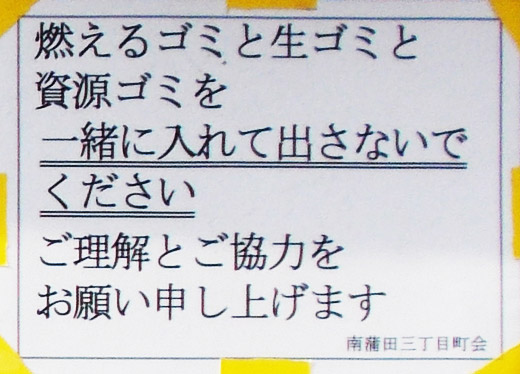 燃えるゴミと生ゴミと
資源ゴミを
一緒に入れて出さないで
ください
ご理解とご協力を
お願い申し上げます
南蒲田三丁目町会